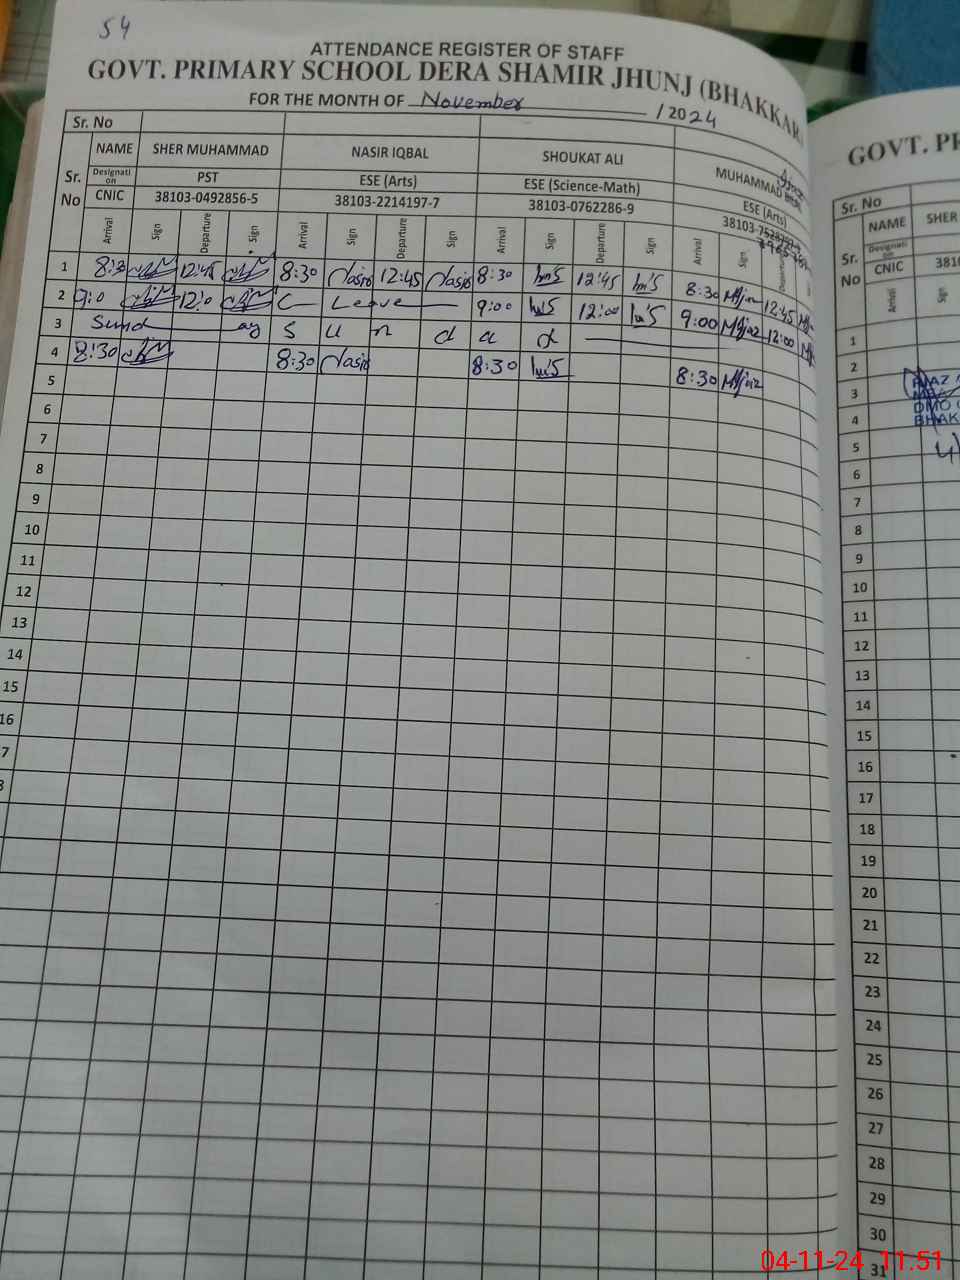 54
ATTENDANCE REGISTER OF STAFF
GOVT. PRIMARY SCHOOL DERA SHAMIR JHUNJ (BHAKKAR)
FOR THE MONTH OF November / 2024
Sr. No
NAME SHER MUHAMMAD NASIR IQBAL SHOUKAT ALI MUHAMMAD
Sr. No
Designati on PST ESE (Arts) ESE (Science-Math) ESE (Arts)
CNIC 38103-0492856-5 38103-2214197-7 38103-0762286-9 38103-
Arrival Sign Departure Sign Arrival Sign Departure Sign Arrival Sign Departure Sign Arrival Sign Departure
1 8:3 12:45 8:30 Nasir 12:45 Nasir 8:30 12:45 8:30 12:45
2 9:0 12:0 C Leave 9:00 12:00 9:00 12:00
3 Sund ay S u n d a d
4 8:30 8:30 Nasir 8:30 8:30
5
6
7
8
9
10
11
12
13
14
15
16
7
GOVT. PR
Sr. No
NAME SHER
Sr. No
Designati on
CNIC 381
Arrival Sign
1
2
3
DMO
4 BHAK
5
6
7
8
9
10
11
12
13
14
15
16
17
18
19
20
21
22
23
24
25
26
27
28
29
30
31
04-11-24 11.51